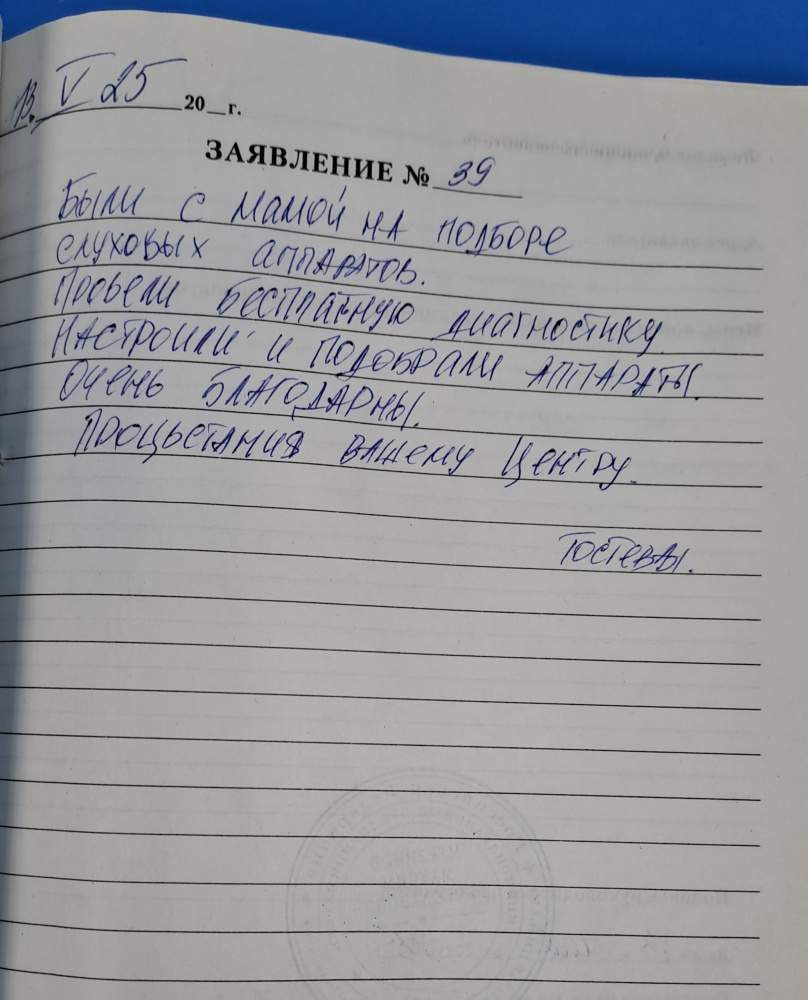 13. V 25 20__г.
ЗАЯВЛЕНИЕ № 39
Были с мамой на подборе
слуховых аппаратов.
Провели бесплатную диагностику
Настроили и подобрали аппараты.
Очень благодарны.
Процветания вашему Центру.
Гостевы.